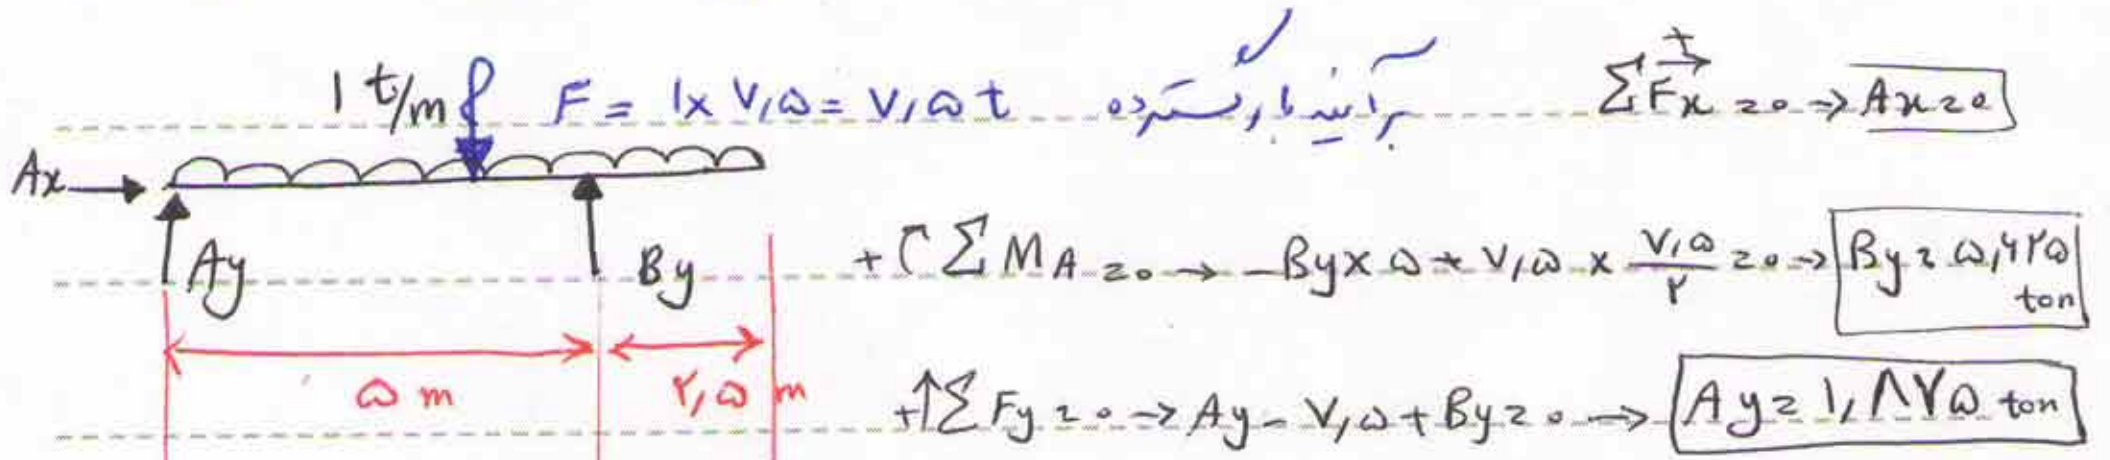 1 t/m F = 1x ۷,۵ = ۷,۵ t برآیند بار گسترده
ΣFx = 0 → Ax = 0
+
Ax
Ay
By
+ ΣMA = 0 → -By x ۵ + ۷,۵ x ۷,۵/۲ = 0 → By = ۵,۶۲۵ ton
۵ m
۲,۵ m
+↑ΣFy = 0 → Ay - ۷,۵ + By = 0 → Ay = ۱,۸۷۵ ton